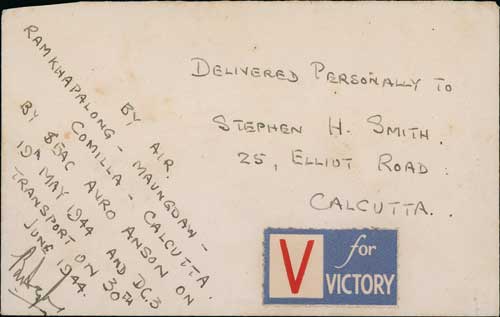 BY AIR.
RAMKHAPALONG - MAUNGDAW -
COMILLA - CALCUTTA.
BY SEAC AVRO ANSON ON
19th MAY 1944 AND DC.3
TRANSPORT ON 30th
JUNE 1944.
DELIVERED PERSONALLY TO
STEPHEN H. SMITH.
25, ELLIOT ROAD.
CALCUTTA.
V for
VICTORY